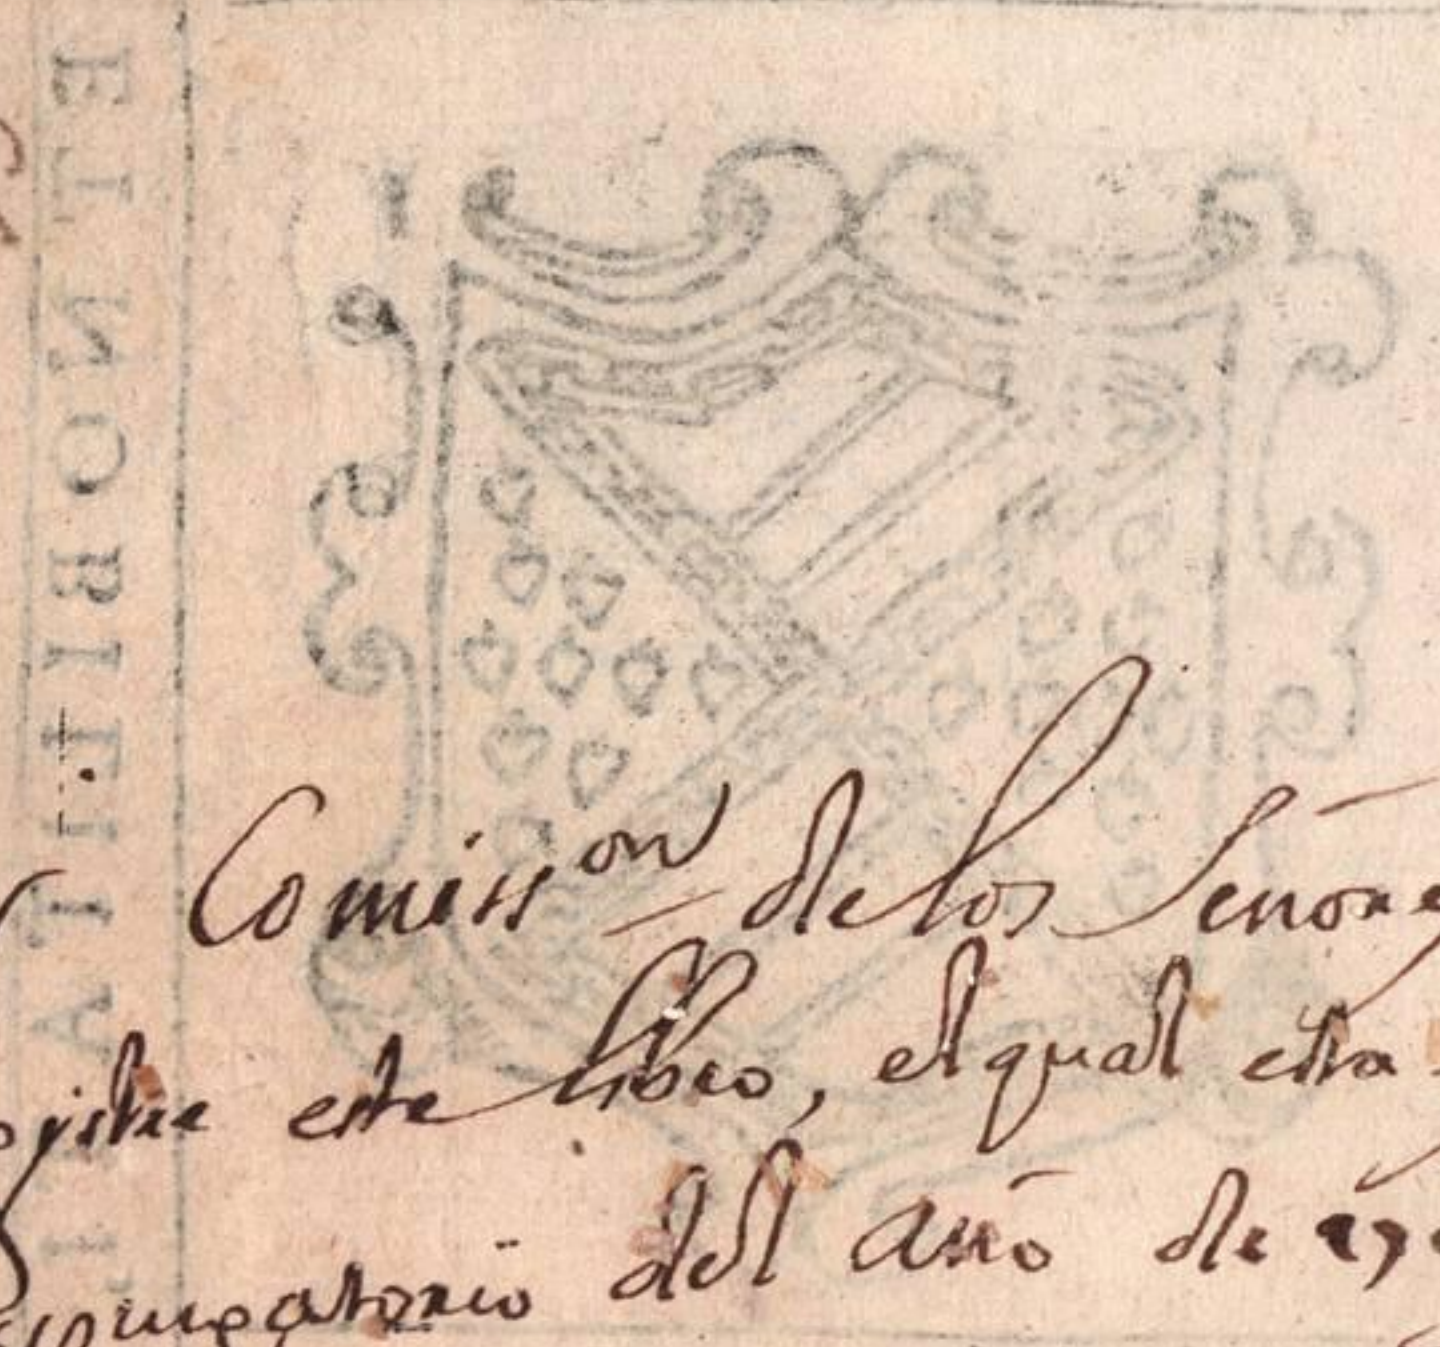 ET NOBILITA
Comiss.on de los Señore
este libro, el qual esta
del año de 17